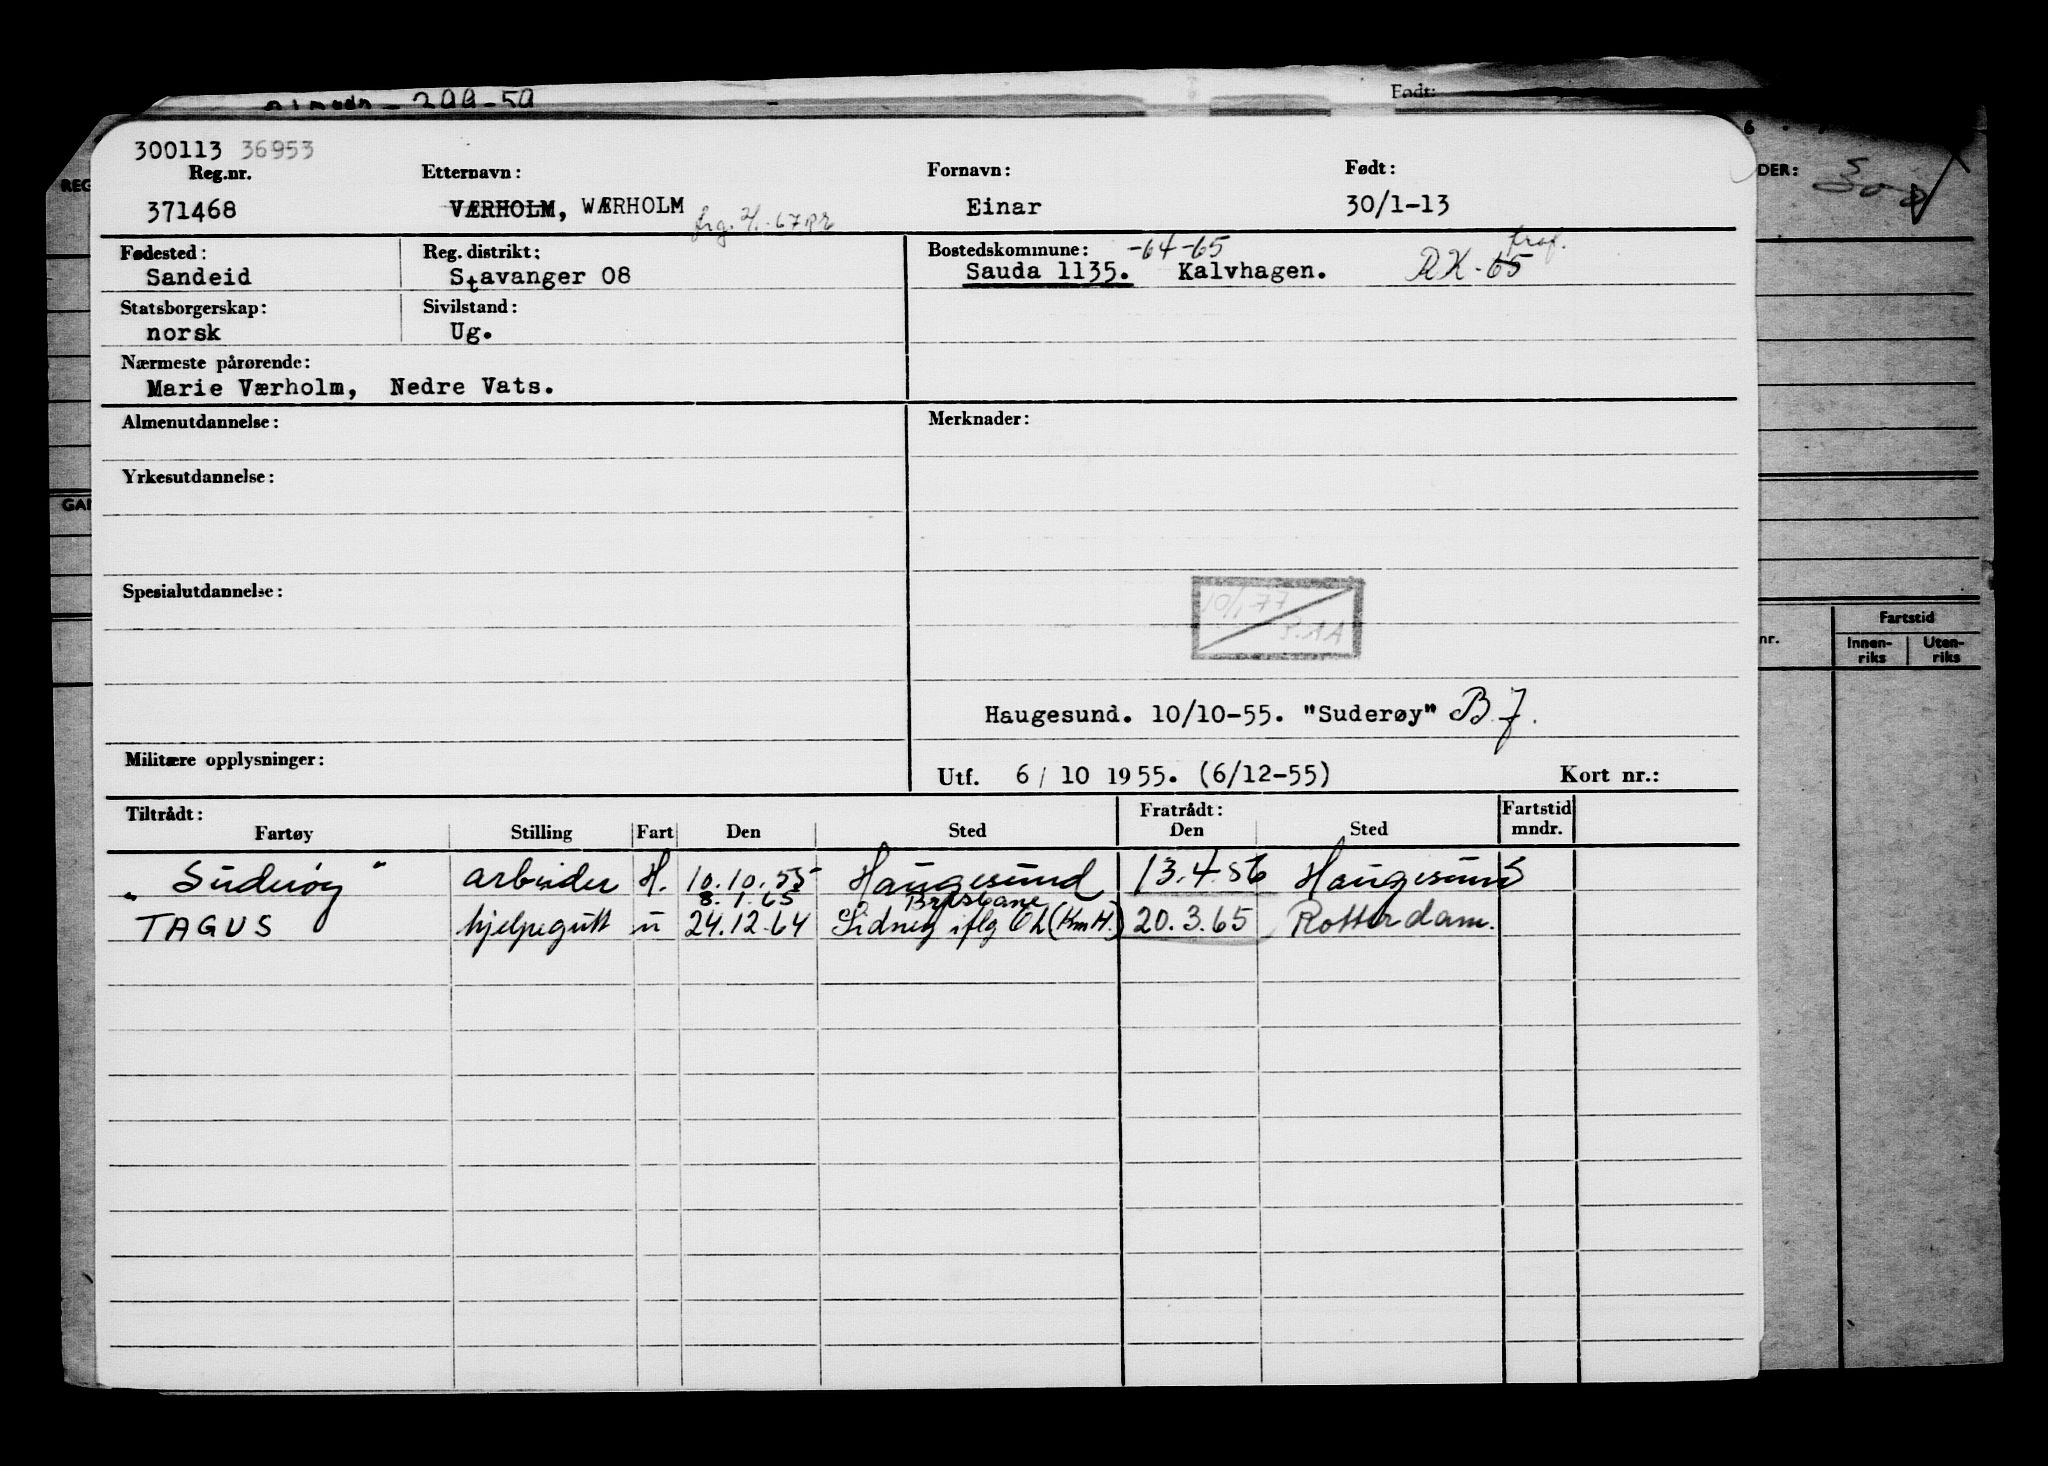 300113 36953
Reg.nr. Etternavn: Fornavn: Født:
371468 VÆRHOLM, WÆRHOLM Einar 30/1-13
Fødested: Reg. distrikt: Bostedskommune: -64-65
Sandeid Stavanger 08 Sauda 1135. Kalvhagen. RK-65
Statsborgerskap: Sivilstand:
norsk Ug.
Nærmeste pårørende:
Marie Værholm, Nedre Vats.
Almenutdannelse: Merknader:
Yrkesutdannelse:
Spesialutdannelse:
10/1 77
Haugesund. 10/10-55. "Suderøy" B.J.
Militære opplysninger:
Utf. 6/ 10 1955. (6/12-55) Kort nr.:
Tiltrådt: Fratrådt: Fartstid
Fartøy Stilling Fart Den Sted Den Sted mndr.
"Suderøy" arbeider H. 10.10.55 Haugesund 13.4.56 Haugesund
8.1.65 Brisbane
TAGUS hjelpegutt u 24.12.64 Sidney iflg (KmH.) 20.3.65 Rotterdam.
Født:
DER:
REG
GAN
nr. Fartstid
Innen-riks Uten-riks